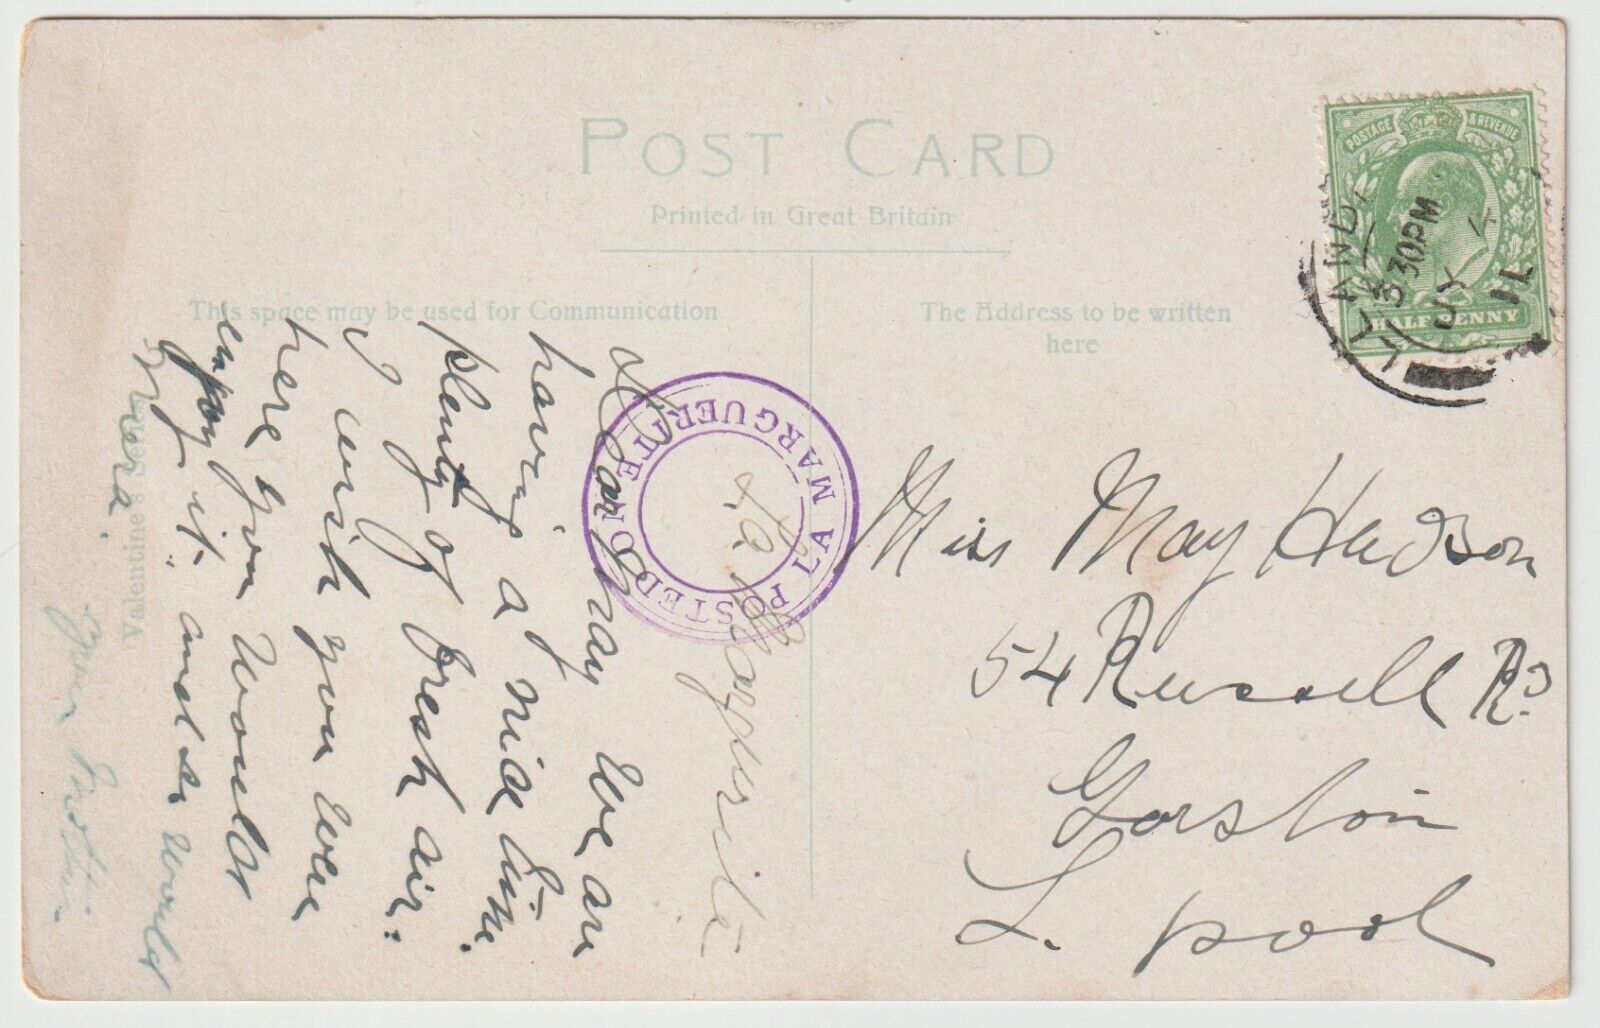 POST CARD
Printed in Great Britain
This space may be used for Communication
The Address to be written
here
POSTAGE & REVENUE
HALFPENNY
3 30 PM
JY 4
11
POSTED ON LA MARGUERITE
La Marguerite
Dear May We are
having a nice time &
plenty of fresh air.
I wish you were
here you would
enjoy it. and so would
Nana.
your
Valentine's Series
Miss May Hudson
54 Russell Rd
Garston
L.pool